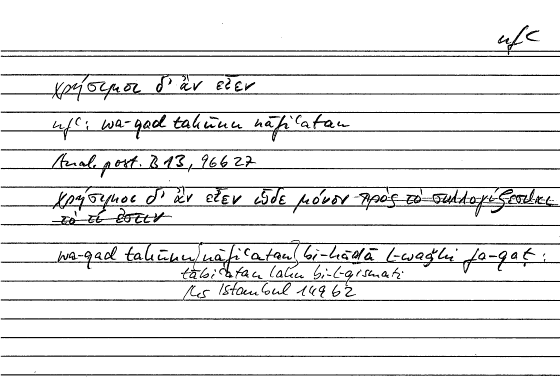 nfʿ
χρήσιμοι δ' ἂν εἶεν
nfʿ: wa-qad takūnu nāfiʿatan
Anal. post. B 13, 96b27
χρήσιμοι δ' ἂν εἶεν ὧδε μόνον πρὸς τὸ συλλογίζεσθαι
τὸ τί ἐστιν
wa-qad takūnu [nāfiʿatan] bi-hāḏā l-waǧhi fa-qaṭ :
tābiʿatan lahu bi-l-qismati
Hs Istanbul 149b2